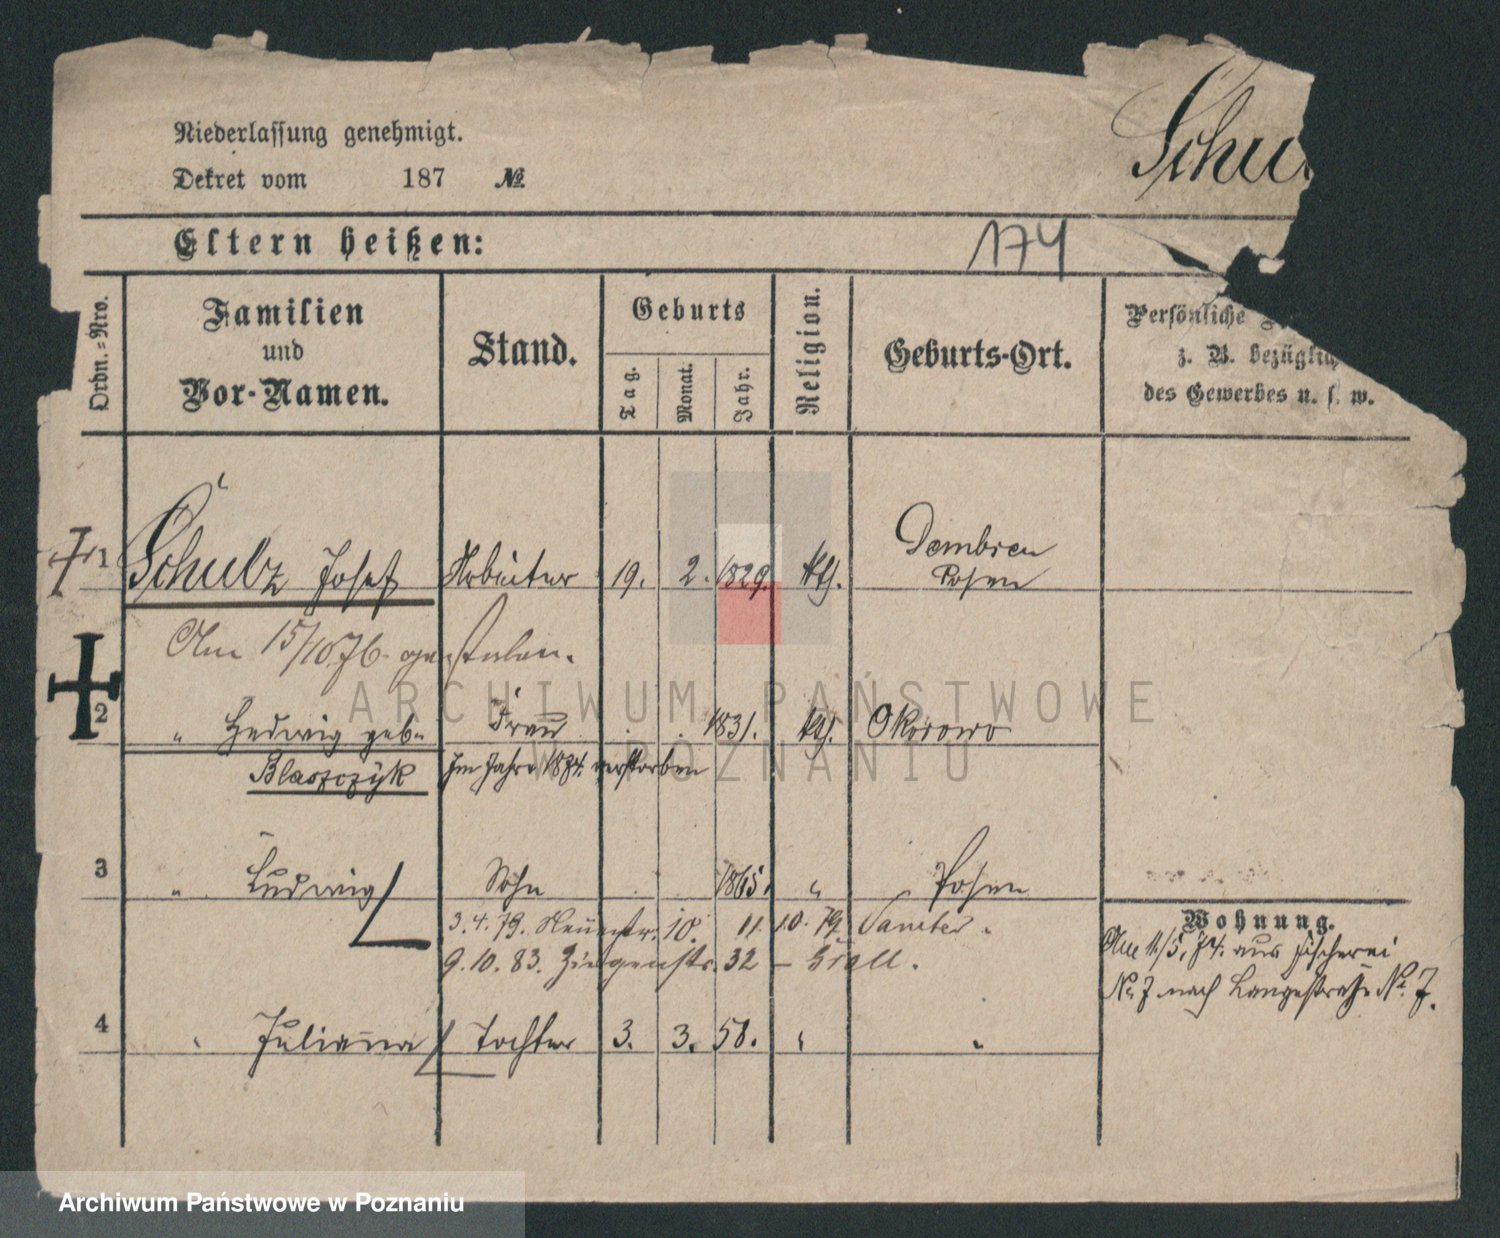 Niederlassung genehmigt.
Dekret vom 187 №
Schul
Eltern heißen:
174
Ordn.-Nro.
Familien und Vor-Namen.
Stand.
Geburts
Tag.
Monat.
Jahr.
Religion.
Geburts-Ort.
Persönliche
z. B. bezüglich
des Gewerbes u. s. w.
1 Schulz Josef Arbeiter 19. 2. 1829. kth. Dembsen
Posen
Am 15/10 76. gestorben.
2 " Hedwig geb. Frau 1831. kth. Okorowo
Blaszczyk Im Jahre 1874. verstorben
3 " Ludwig Sohn 1865. " Posen
3.4.79. 10. 11.10.79
9.10.83. Ziegenstr. 32 –
4 " Julianna Tochter 3. 3. 58. " "
Wohnung.
Am 11/5. 74. aus Fischerei
No. 7 nach Langestraße No. 7.
ARCHIWUM PAŃSTWOWE
W POZNANIU
Archiwum Państwowe w Poznaniu